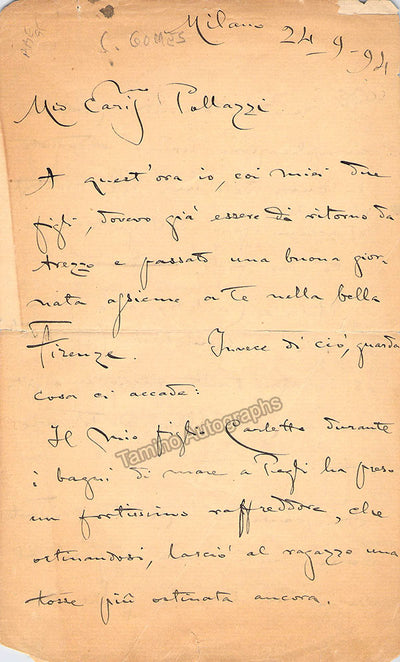 C. GOMES
Milano 24-9-94.
Mio Cariss.mo Pallazzi
A quest'ora io, coi miei due
figli, dovevo già essere di ritorno da
Arezzo e passato una buona gior-
nata assieme a te nella bella
Firenze. Invece di ciò, guarda
cosa ci accade:
Il mio figlio Carletto durante
i bagni di mare a Pegli ha preso
un fortissimo raffreddore, che
ostinandosi, lasciò al ragazzo una
tosse più ostinata ancora.
Tamino Autographs